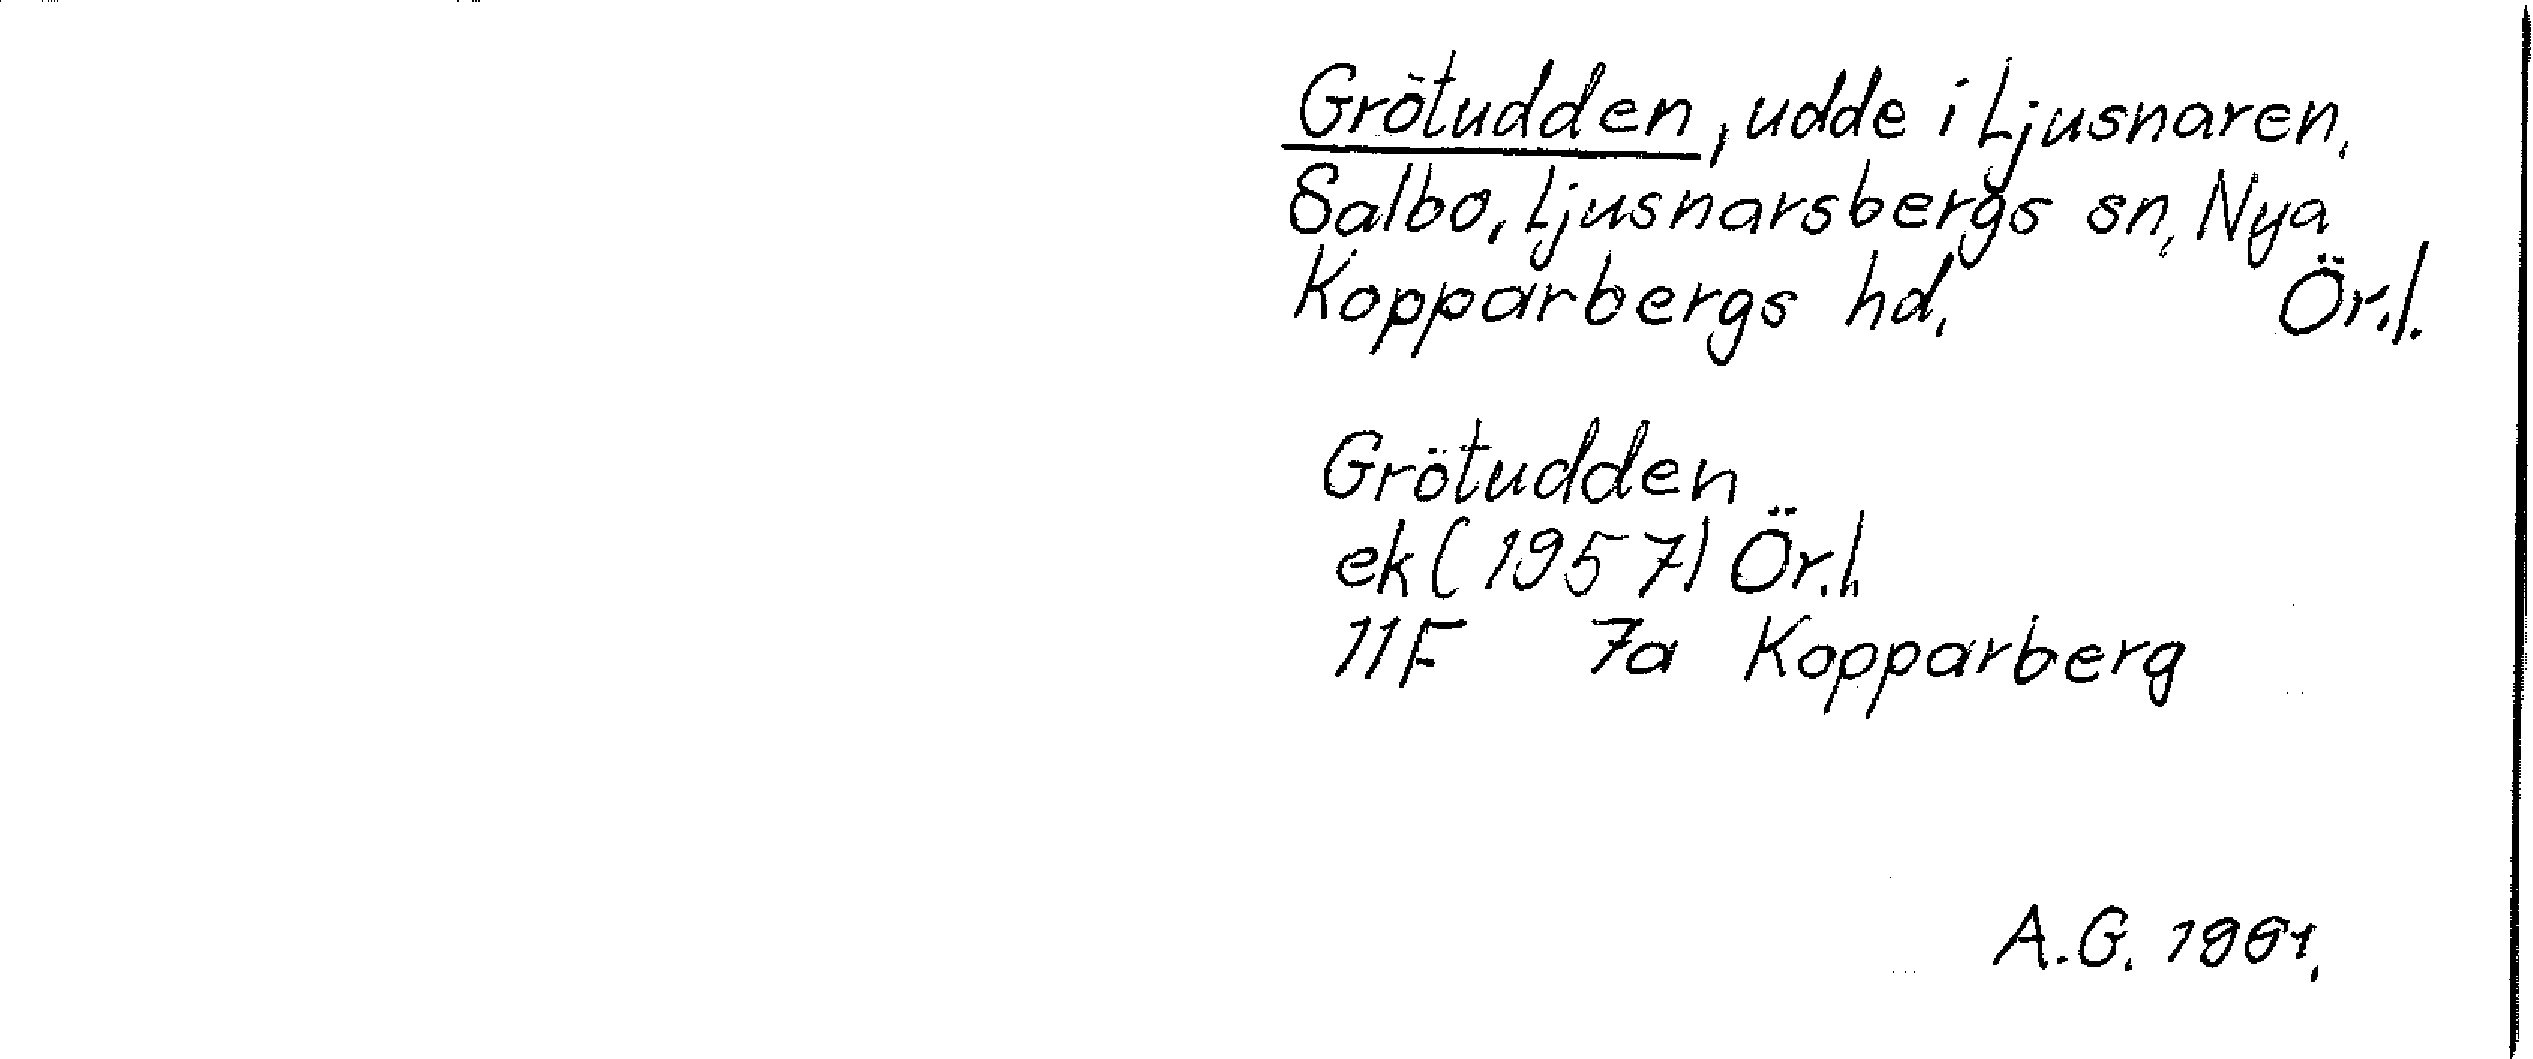 Grötudden, udde i Ljusnaren,
Salbo, Ljusnarsbergs sn, Nya
Kopparbergs hd. Ör.l.
Grötudden
ek (1957) Ör.l.
11F 7a Kopparberg
A.G. 1961.